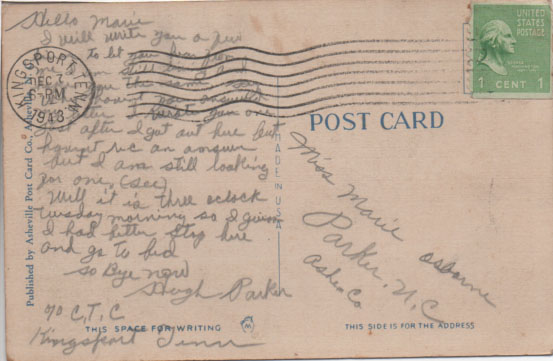 Hello Marie
I will write you a few
to let you hear from
still
the same
haven't you answered
letter I wrote you one
after I got out here but
haven't rec an answer
but I am still looking
for one. (see)
Well it is three oclock
tuesday morning so I guess
I had better stop here
and go to bed
so Bye now
Hugh Parker
% C, T, C
Kingsport Tenn
THIS SPACE FOR WRITING
Published by Asheville Post Card Co., Asheville
KINGSPORT, TENN.
DEC 7
6-PM
1943
MADE IN U.S.A.
UNITED
STATES
POSTAGE
1 CENT 1
POST CARD
Miss Marie Osborne
Parker, N, C
Ashe, Co
THIS SIDE IS FOR THE ADDRESS